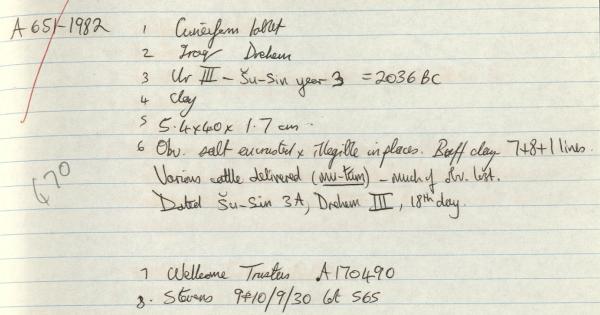 A 651-1982
1 Cuneiform tablet
2 Iraq Drehem
3 Ur III - Šu-Sin year 3 = 2036 BC
4 Clay
5 5.4 x 4.0 x 1.7 cm.
6 Obv. salt encrusted & illegible in places. Buff clay 7+8+1 lines.
Various cattle delivered (mu-túm) - much of obv. lost.
Dated Šu-Sin 3A, Drehem III, 18th day.
670
7 Wellcome Trustees A170490
8. Stevens 9+10/9/30 lot 565